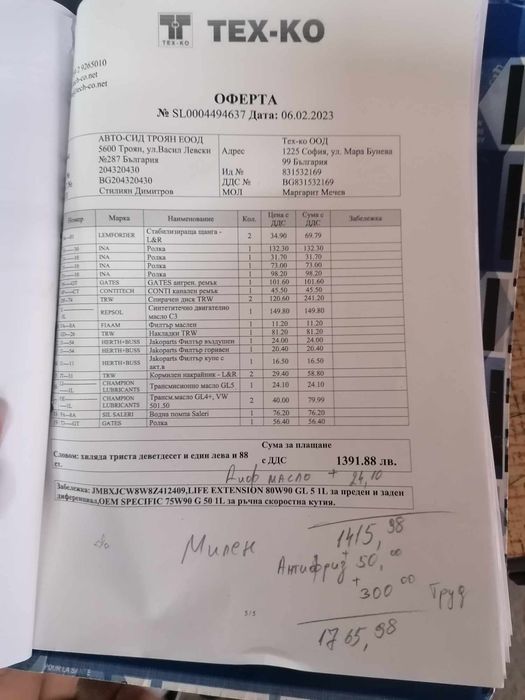 TEX-KO
TEX-KO
2 9265010
ch-co.net
tech-co.net
ОФЕРТА
№ SL0004494637 Дата: 06.02.2023
АВТО-СИД ТРОЯН ЕООД Тех-ко ООД
5600 Троян, ул.Васил Левски Адрес 1225 София, ул. Мара Бунева
№287 България 99 България
204320430 Ид № 831532169
BG204320430 ДДС № BG831532169
Стилиян Димитров МОЛ Маргарит Мечев
Номер Марка Наименование Кол. Цена с ДДС Сума с ДДС Забележка
LEMFORDER Стабилизираща щанга - L&R 2 34.90 69.79
INA Ролка 1 132.30 132.30
INA Ролка 1 31.70 31.70
INA Ролка 1 73.00 73.00
INA Ролка 1 98.20 98.20
GATES GATES ангрен. ремък 1 101.60 101.60
CONTITECH CONTI канален ремък 1 45.50 45.50
TRW Спирачен диск TRW 2 120.60 241.20
REPSOL Синтетитечно двигателно масло C3 1 149.80 149.80
FIAAM Филтър маслен 1 11.20 11.20
TRW Накладки TRW 1 81.20 81.20
HERTH+BUSS Jakoparts Филтър въздушен 1 24.00 24.00
HERTH+BUSS Jakoparts Филтър горивен 1 20.40 20.40
HERTH+BUSS Jakoparts Филтър купе с акт.в 1 16.50 16.50
TRW Кормилен накрайник - L&R 2 29.40 58.80
CHAMPION LUBRICANTS Трансмисионно масло GL5 1 24.10 24.10
CHAMPION LUBRICANTS Трансм.масло GL4+, VW 501.50 2 40.00 79.99
SIL SALERI Водна помпа Saleri 1 76.20 76.20
GATES Ролка 1 56.40 56.40
Сума за плащане
Словом: хиляда триста деветдесет и един лева и 88 ст. с ДДС 1391.88 лв.
Диф масло + 24,10
Забележка: JMBXJCW8W8Z412409,LIFE EXTENSION 80W90 GL 5 1L за преден и заден
диференциал,OEM SPECIFIC 75W90 G 50 1L за ръчна скоростна кутия.
1415,98
Милен
+
Антифриз 50,00
+
300 00 Труд
5/5
1765,98